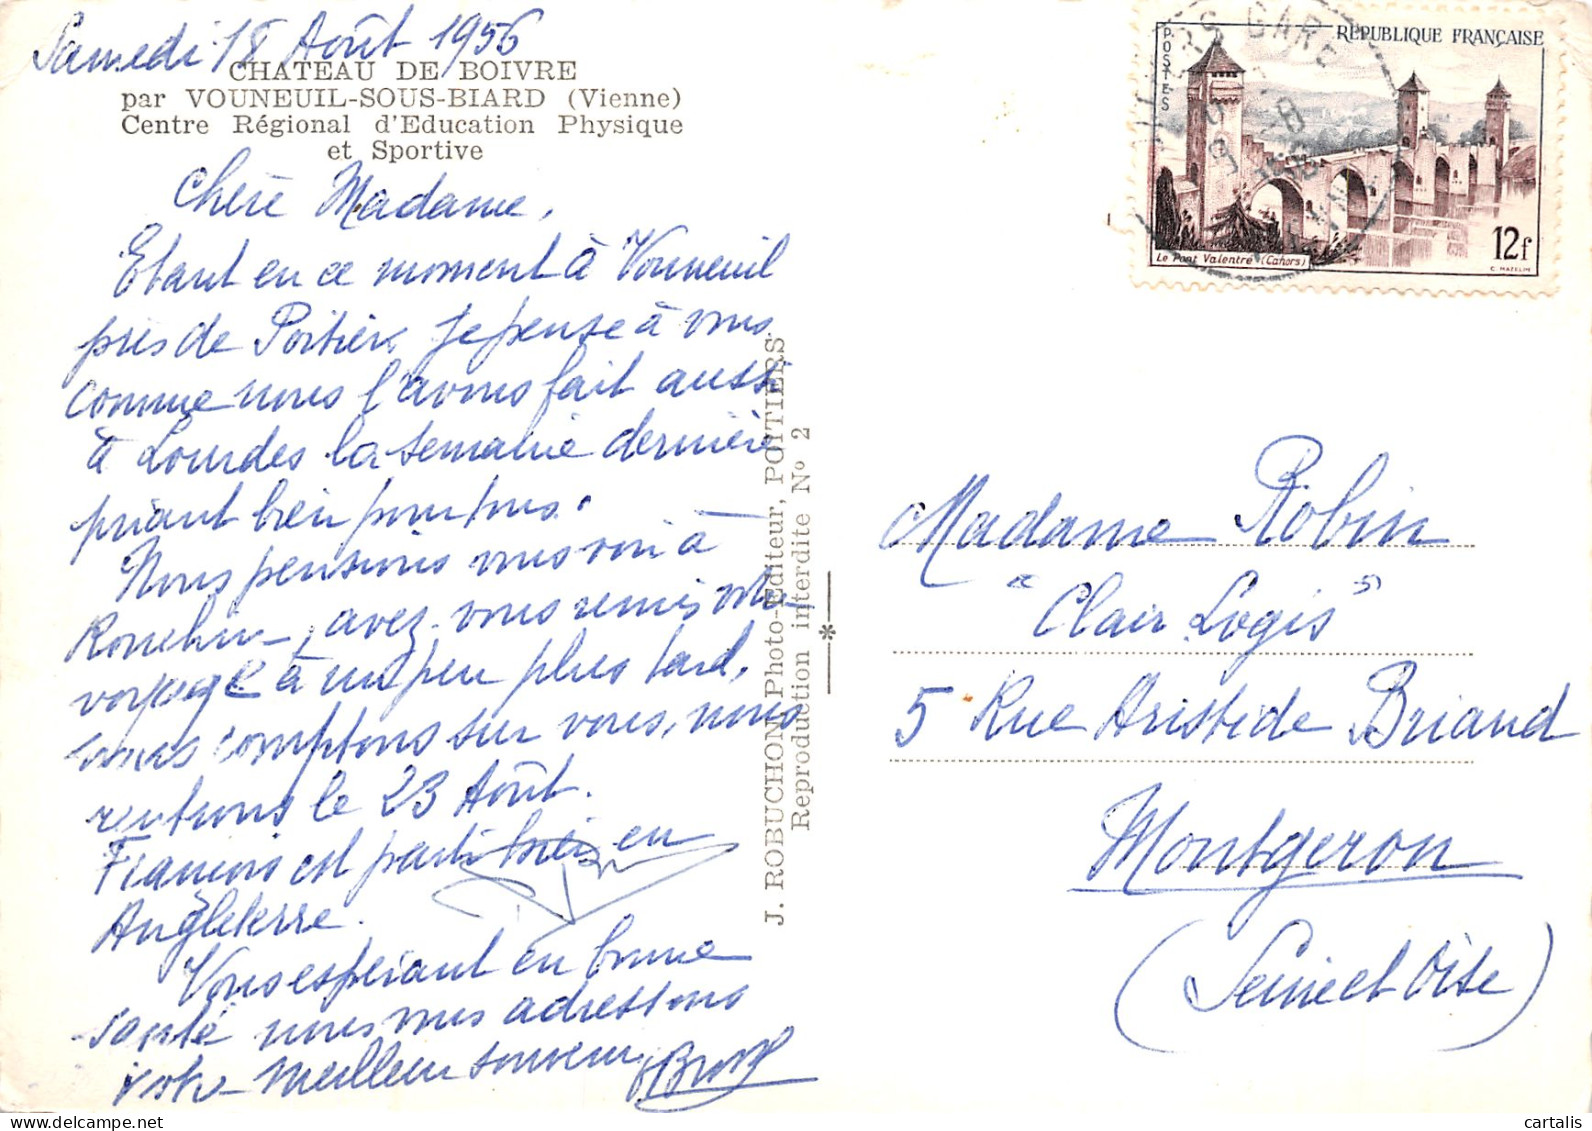 Samedi 18 Août 1956
CHATEAU DE BOIVRE
par VOUNEUIL-SOUS-BIARD (Vienne)
Centre Régional d'Education Physique
et Sportive
Chère Madame,
Etant en ce moment à Vouneuil
près de Poitiers, je pense à vous
comme nous l'avons fait aussi
à Lourdes la semaine dernière
priant bien pour tous.
Nous pensions vous voir à
avez-vous remis votre
voyage à un peu plus tard,
nous comptons sur vous, nous
rentrons le 23 Août.
François est parti hier en
Angleterre.
Vous espérant en bonne
santé nous vous adressons
votre meilleur souvenir
J. ROBUCHON Photo-Editeur, POITIERS
Reproduction interdite No 2
POSTES
REPUBLIQUE FRANÇAISE
Le Pont Valentré (Cahors)
12f
C. MAZELIN
GARE
Madame Robin
"Clair Logis"
5 Rue Aristide Briand
Montgeron
(Seine et Oise)
cartalis